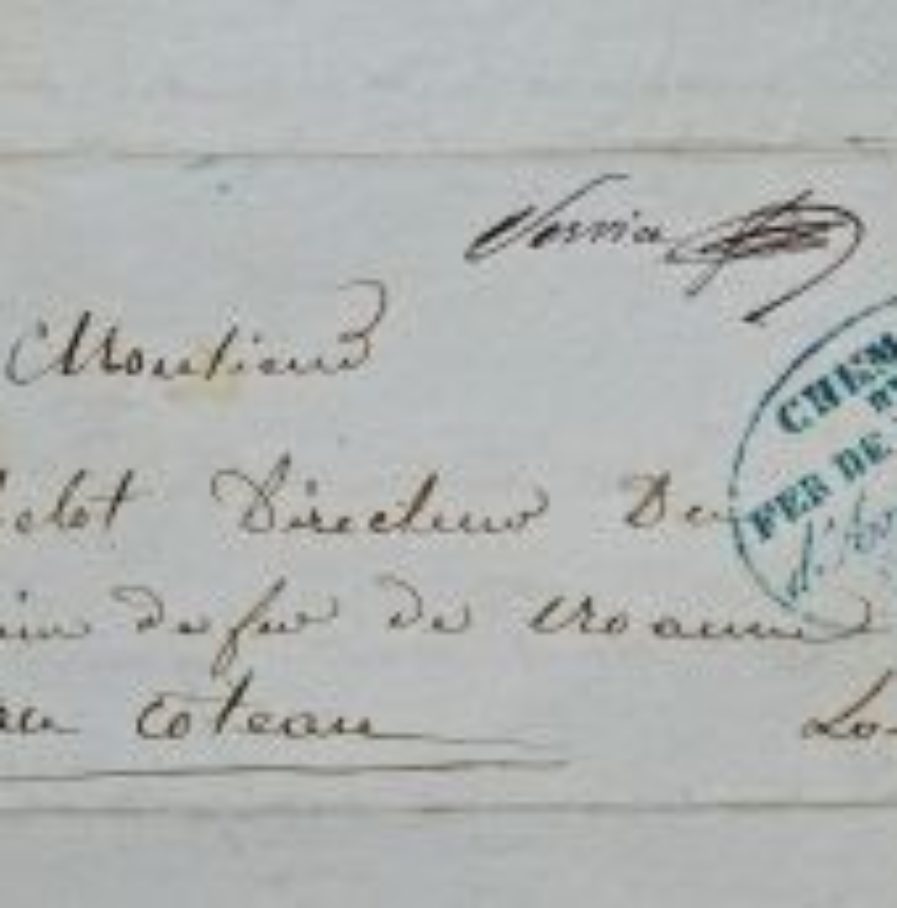 Monsieur
clot Directeur Du
de fer de Roanne
au Coteau
CHEM
FER DE